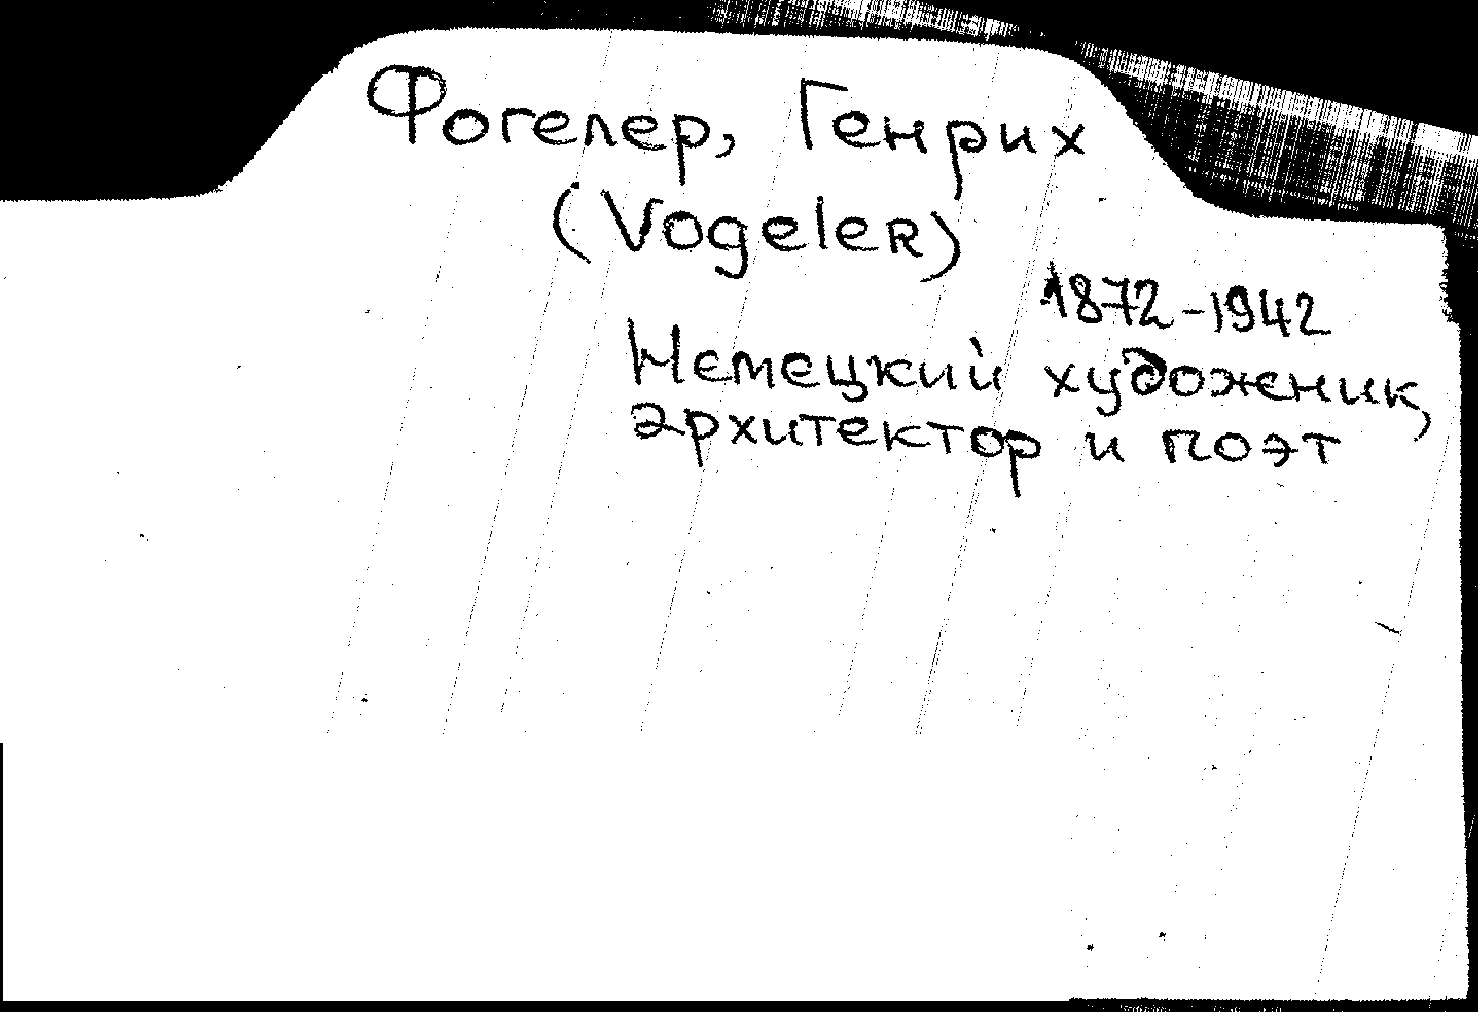 Фогелер, Генрих
(Vogeler)
1872-1942
Немецкий художник,
архитектор и поэт